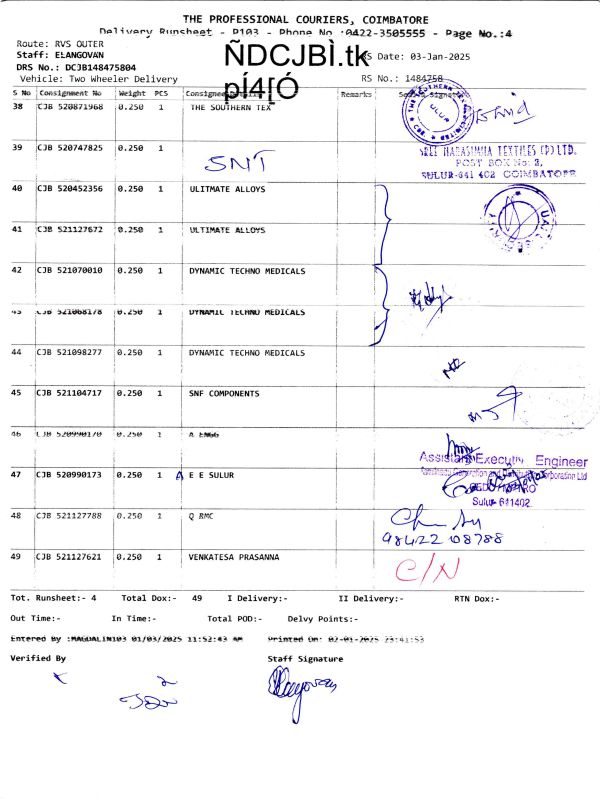 THE PROFESSIONAL COURIERS, COIMBATORE
Delivery Runsheet - P103 - Phone No :0422-3505555 - Page No.:4
Route: RVS OUTER
ÑDCJBÌ.tk
Staff: ELANGOVAN
S Date: 03-Jan-2025
DRS No.: DCJB148475804
Vehicle: Two Wheeler Delivery
RS No.: 1484758
pÍ4[Ó
S No Consignment No Weight PCS Consignee Remarks
38 CJB 520871968 0.250 1 THE SOUTHERN TEX
39 CJB 520747825 0.250 1 SNT
SREE NARASIMHA TEXTILES (P) LTD.
POST BOX No: 2,
SULUR-641 402 COIMBATORE
40 CJB 520452356 0.250 1 ULITMATE ALLOYS
41 CJB 521127672 0.250 1 ULTIMATE ALLOYS
42 CJB 521070010 0.250 1 DYNAMIC TECHNO MEDICALS
43 CJB 521068178 0.250 1 DYNAMIC TECHNO MEDICALS
44 CJB 521098277 0.250 1 DYNAMIC TECHNO MEDICALS
45 CJB 521104717 0.250 1 SNF COMPONENTS
46 CJB 520990170 0.250 1 A ENGG
Assistant Executive Engineer
47 CJB 520990173 0.250 1 A E E SULUR
Sulur 641402
48 CJB 521127788 0.250 1 Q BMC
98422 08788
49 CJB 521127621 0.250 1 VENKATESA PRASANNA C/N
Tot. Runsheet:- 4 Total Dox:- 49 I Delivery:- II Delivery:- RTN Dox:-
Out Time:- In Time:- Total POD:- Delvy Points:-
Entered By :MAGDALIN103 01/03/2025 11:52:43 AM Printed On: 02-01-2025 23:41:53
Verified By Staff Signature